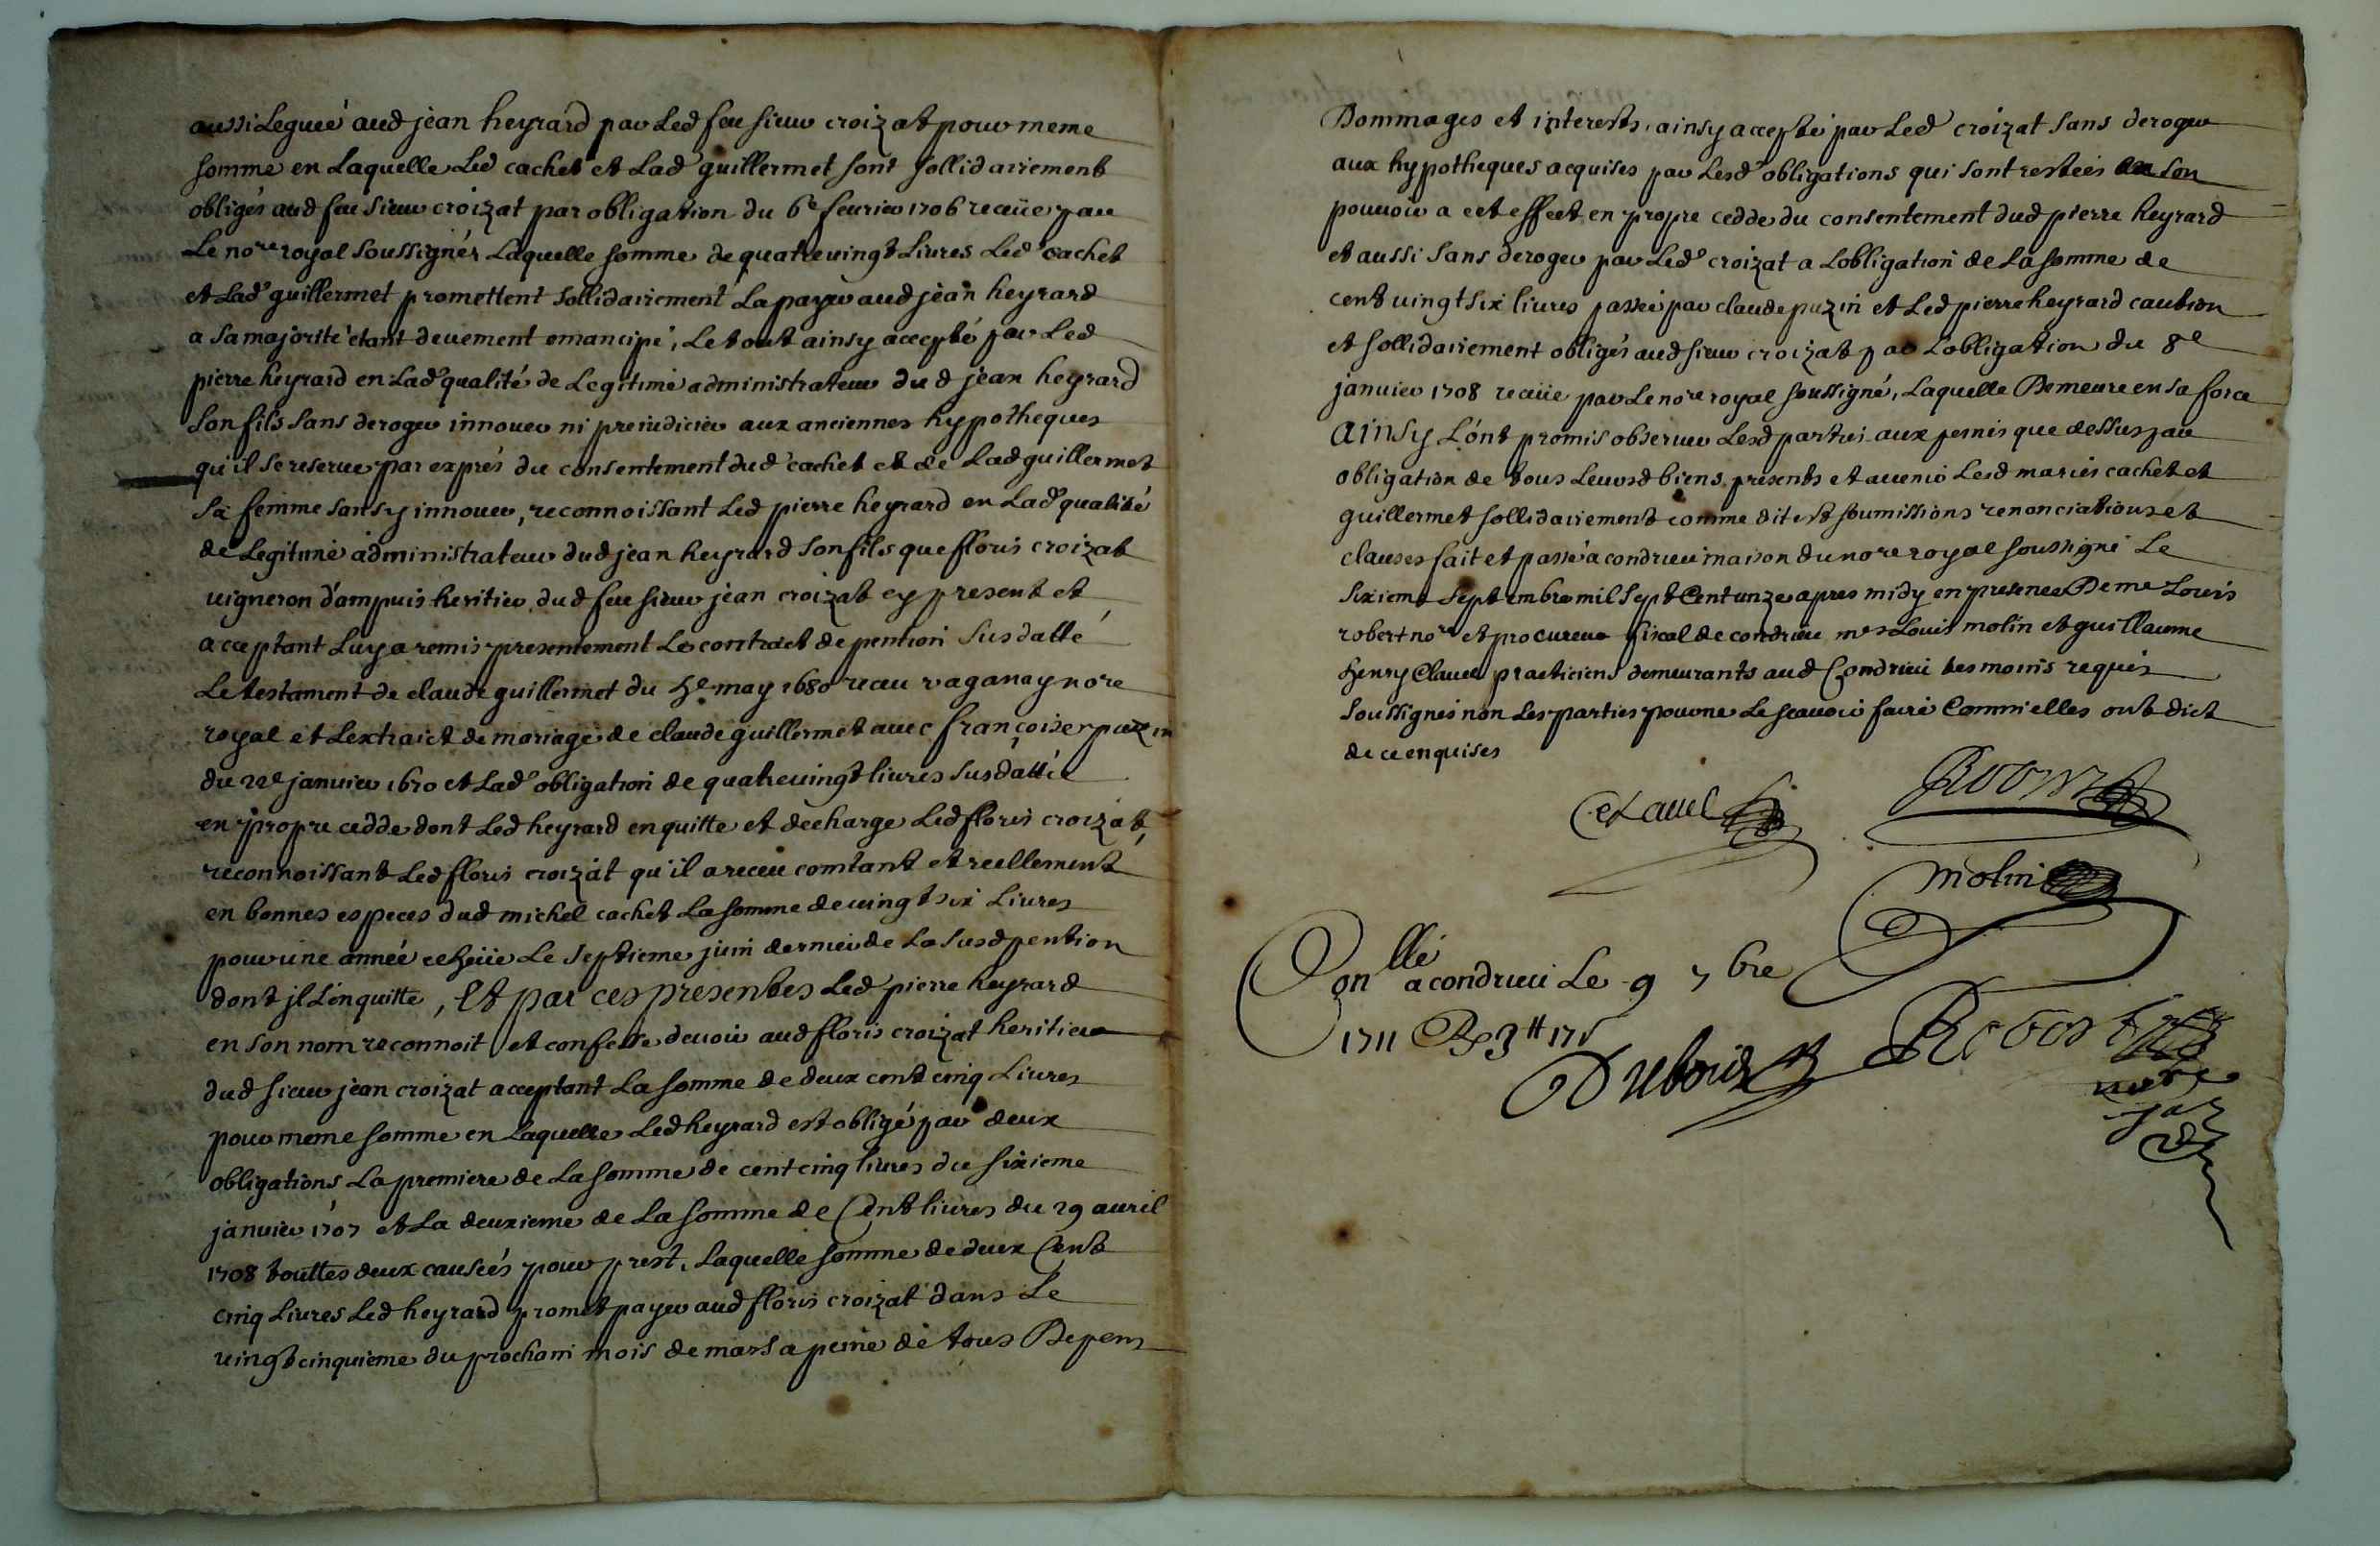 aussi Leguée aud jean heyrard par Led feu sieur croizat pour meme
somme en Laquelle Led cachet et Lad guillermet sont sollidairement
obligés aud feu sieur croizat par obligation du 6e feurier 1706 receüe par
Le nore royal soussigné, Laquelle somme de quatreuingt Liures Led cachet
et Lad guillermet promettent sollidairement La payer aud jean heyrard
a sa majorité étant deuement emancipé, Le tout ainsy accepté par Led
pierre heyrard en Lad qualité de Legitime administrateur dud jean heyrard
son fils sans deroger innouer ni preiudicier aux anciennes hypotheques
qu'il se reserue par exprés du consentement dud cachet et de Lad guillermet
sa femme sans y innouer, reconnoissant Led pierre heyrard en Lad qualité
de Legitime administrateur dud jean heyrard son fils que floris croizat
uigneron d'ampuis heritier dud feu sieur jean croizat cy present et
acceptant Luy a remis presentement Le contract de pention susdatté
Le testament de claude guillermet du 5e may 1680 receu vaganay nore
royal et Lextraict de mariage de claude guillermet auec françoise puzin
du 22e januier 1670 et Lad obligation de quatreuingt liures susdattée
en propre cedde dont Led heyrard en quitte et decharge Led floris croizat,
reconnoissant Led floris croizat qu'il a receu comtant et reellement
en bonnes especes dud michel cachet La somme de uingt six Liures
pour une année echeüe Le septieme juin dernier de La susd pention
dont jl L'en quitte, Et par ces presentes Led pierre heyrard
en son nom reconnoit et confesse deuoir aud floris croizat heritier
dud sieur jean croizat acceptant La somme de deux cent cinq Liures
pour meme somme en Laquelle Led heyrard est obligé par deux
obligations La premiere de La somme de cent cinq liures du sixieme
januier 1707 et La deuxieme de La somme de Cent liures du 29 auril
1708 touttes deux causées pour prest, Laquelle somme de deux Cent
cinq Liures Led heyrard promet payer aud floris croizat dans Le
uingt cinquieme du prochain mois de mars a peine de tous Depens
Dommages et interests, ainsy accepté par Led croizat sans deroger
aux hypotheques acquises par Lesd obligations qui sont restées en son
pouuoir a cet effect en propre cedde du consentement dud pierre heyrard
et aussi sans deroger par Led croizat a Lobligation de La somme de
cent uingt six liures passée par claude puzin et Led pierre heyrard caution
et sollidairement obligés aud sieur croizat par Lobligation du 8e
januier 1708 receüe par Le nore royal soussigné, Laquelle Demeure en sa force
ainsy L'ont promis obseruer Lesd parties aux peines que dessus par
obligation de tous Leursd biens presents et auenir Lesd mariés cachet et
guillermet sollidairement comme dit est soumissions renonciations et
clauses fait et passé a condrieu maison du nore royal soussigné Le
sixieme septembre mil sept Cent unze apres midy en presence De me Louis
robert nore et procureur fiscal de condrieu mes Louis molin et guillaume
henry Clauel practiciens demeurants aud Condrieu tesmoins requis
soussignés non Les parties pour ne Le scauoir faire Comm'elles ont dict
de ce enquises
Clauel
molin
Conllé a condrieu Le 9 7bre
1711
Dubois